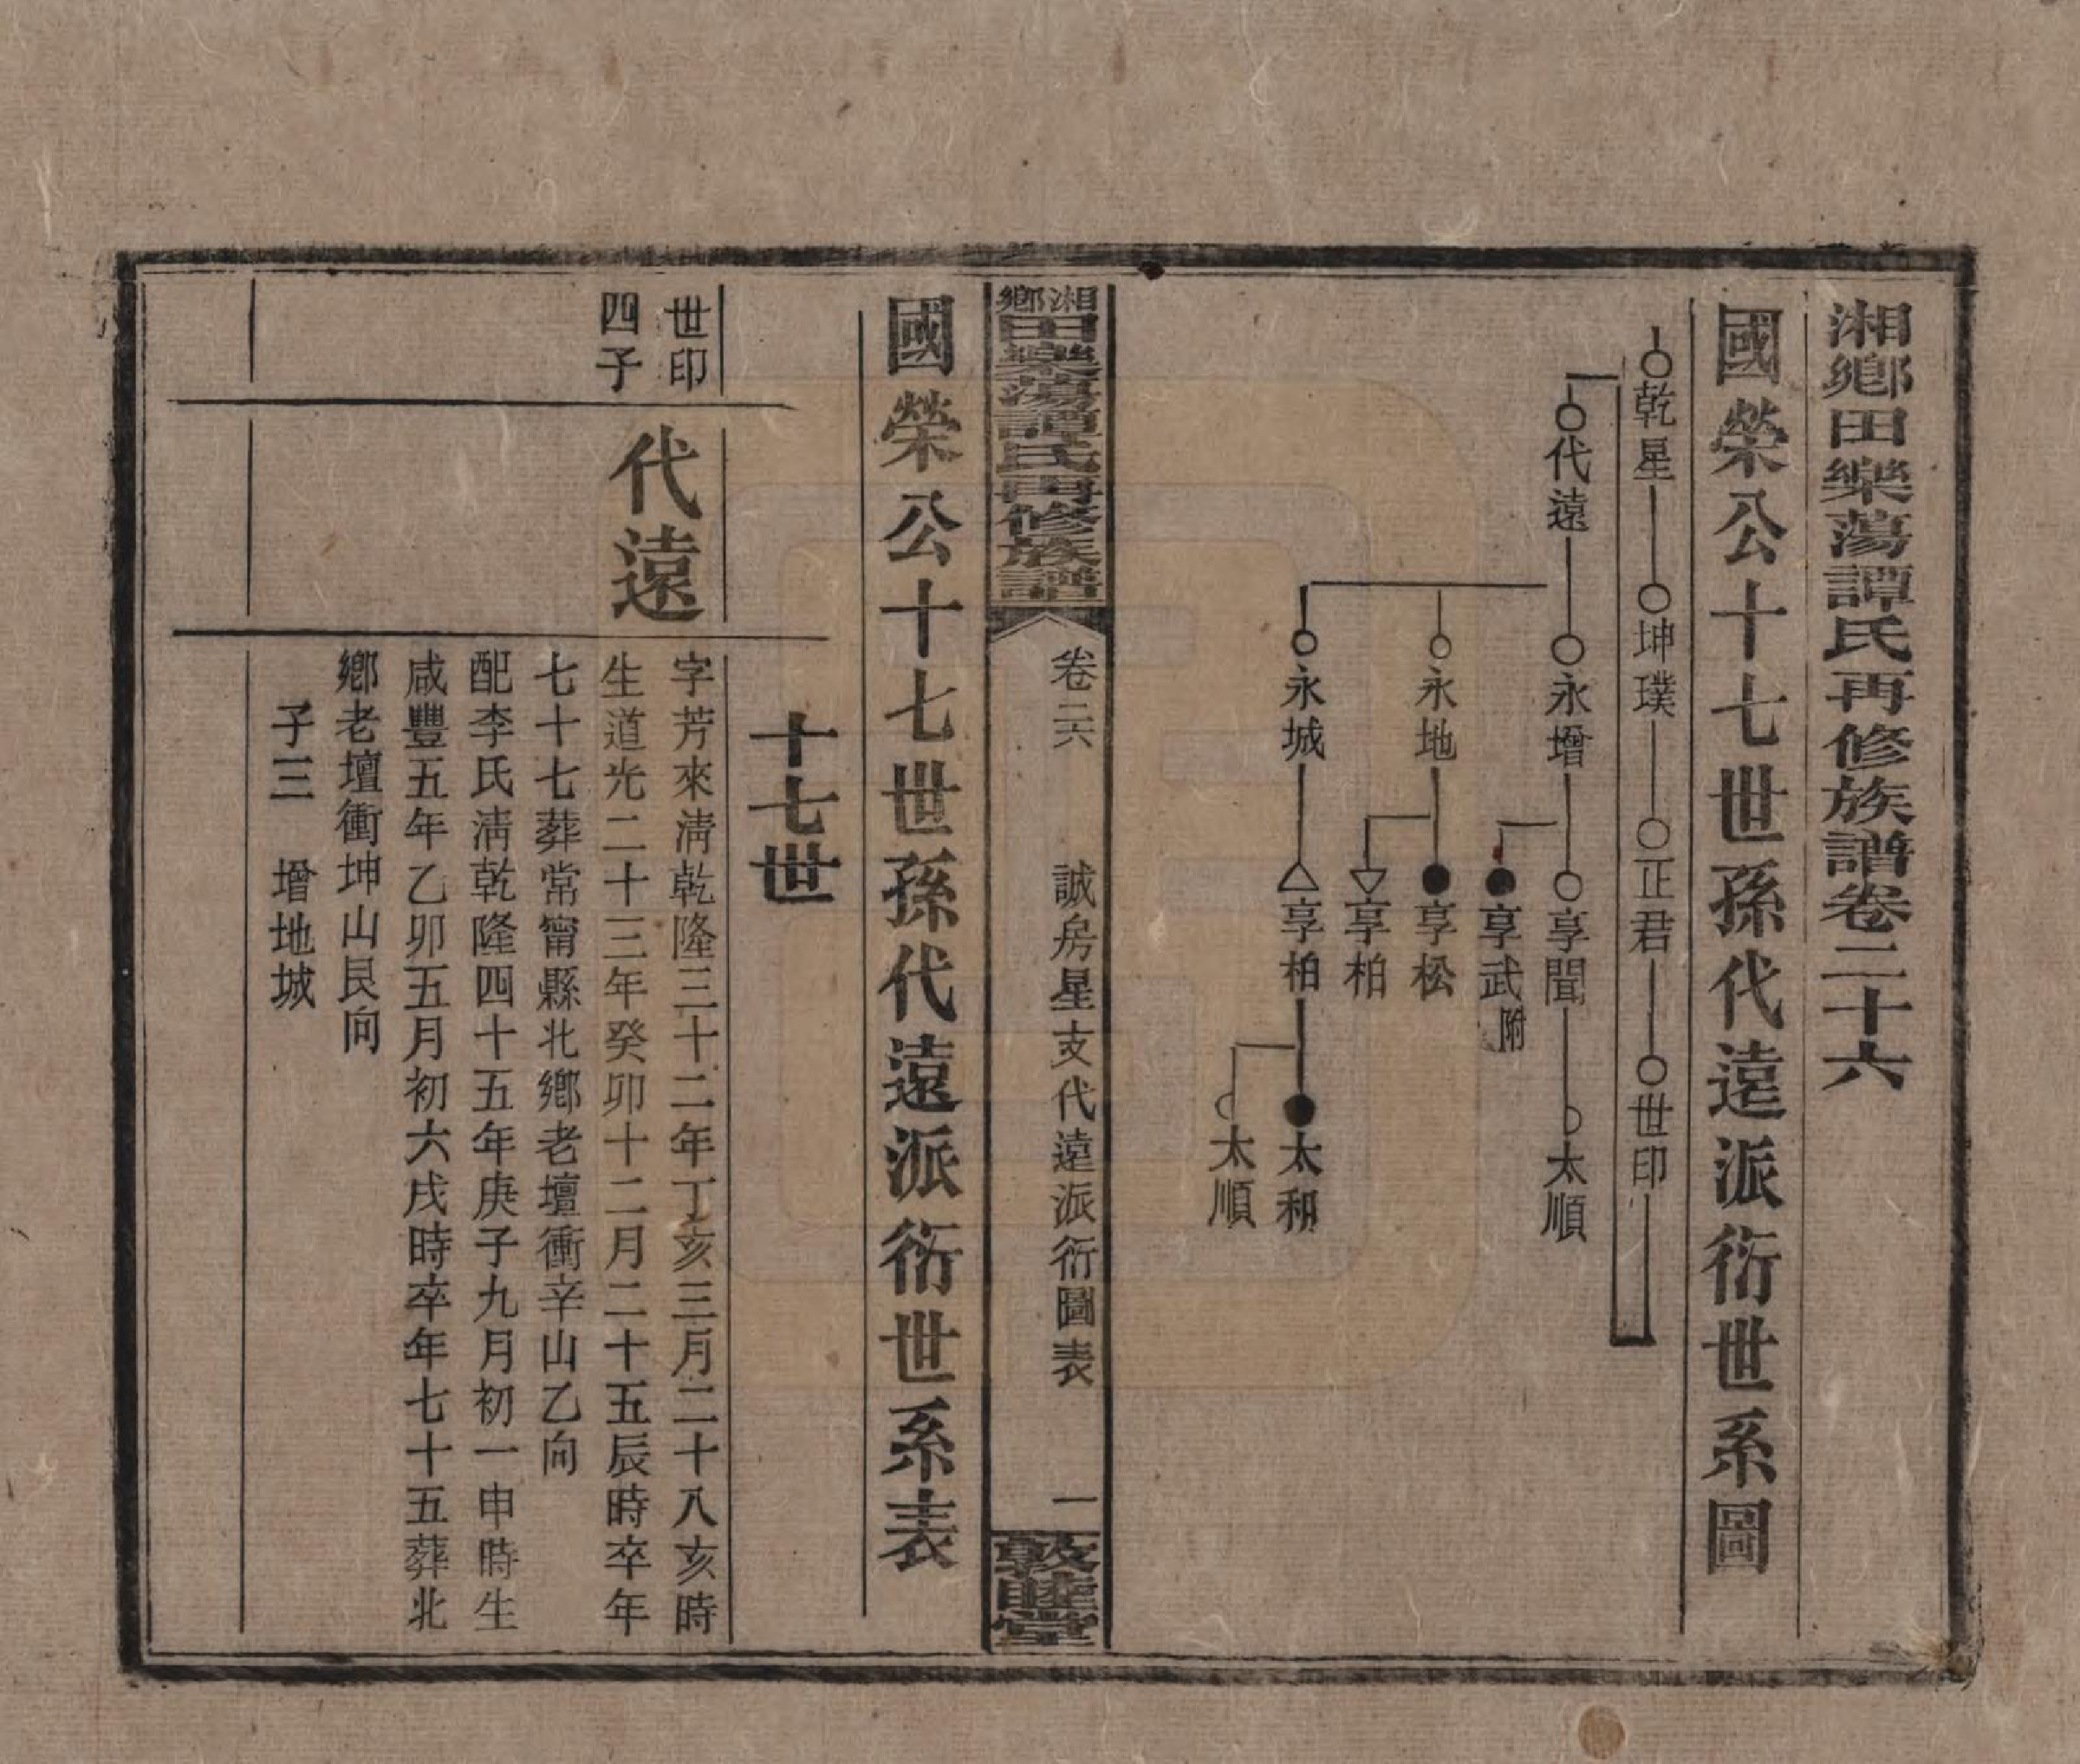 湘鄉田樂蕩譚氏再修族譜卷二十六
國榮公十七世孫代遠派衍世系圖
乾星 坤璞 正君 世印
代遠 永增 享聞 太順
享武附
永地 享松
享柏
永城 享柏 太和
太順
湘鄉田樂蕩譚氏再修族譜 卷二六 誠房星支代遠派衍圖表 一 敦睦堂
國榮公十七世孫代遠派衍世系表
十七世
世印
四子
代遠
字芳來淸乾隆三十二年丁亥三月二十八亥時
生道光二十三年癸卯十二月二十五辰時卒年
七十七葬常甯縣北鄉老壇衝辛山乙向
配李氏淸乾隆四十五年庚子九月初一申時生
咸豐五年乙卯五月初六戌時卒年七十五葬北
鄉老壇衝坤山艮向
子三 增地城